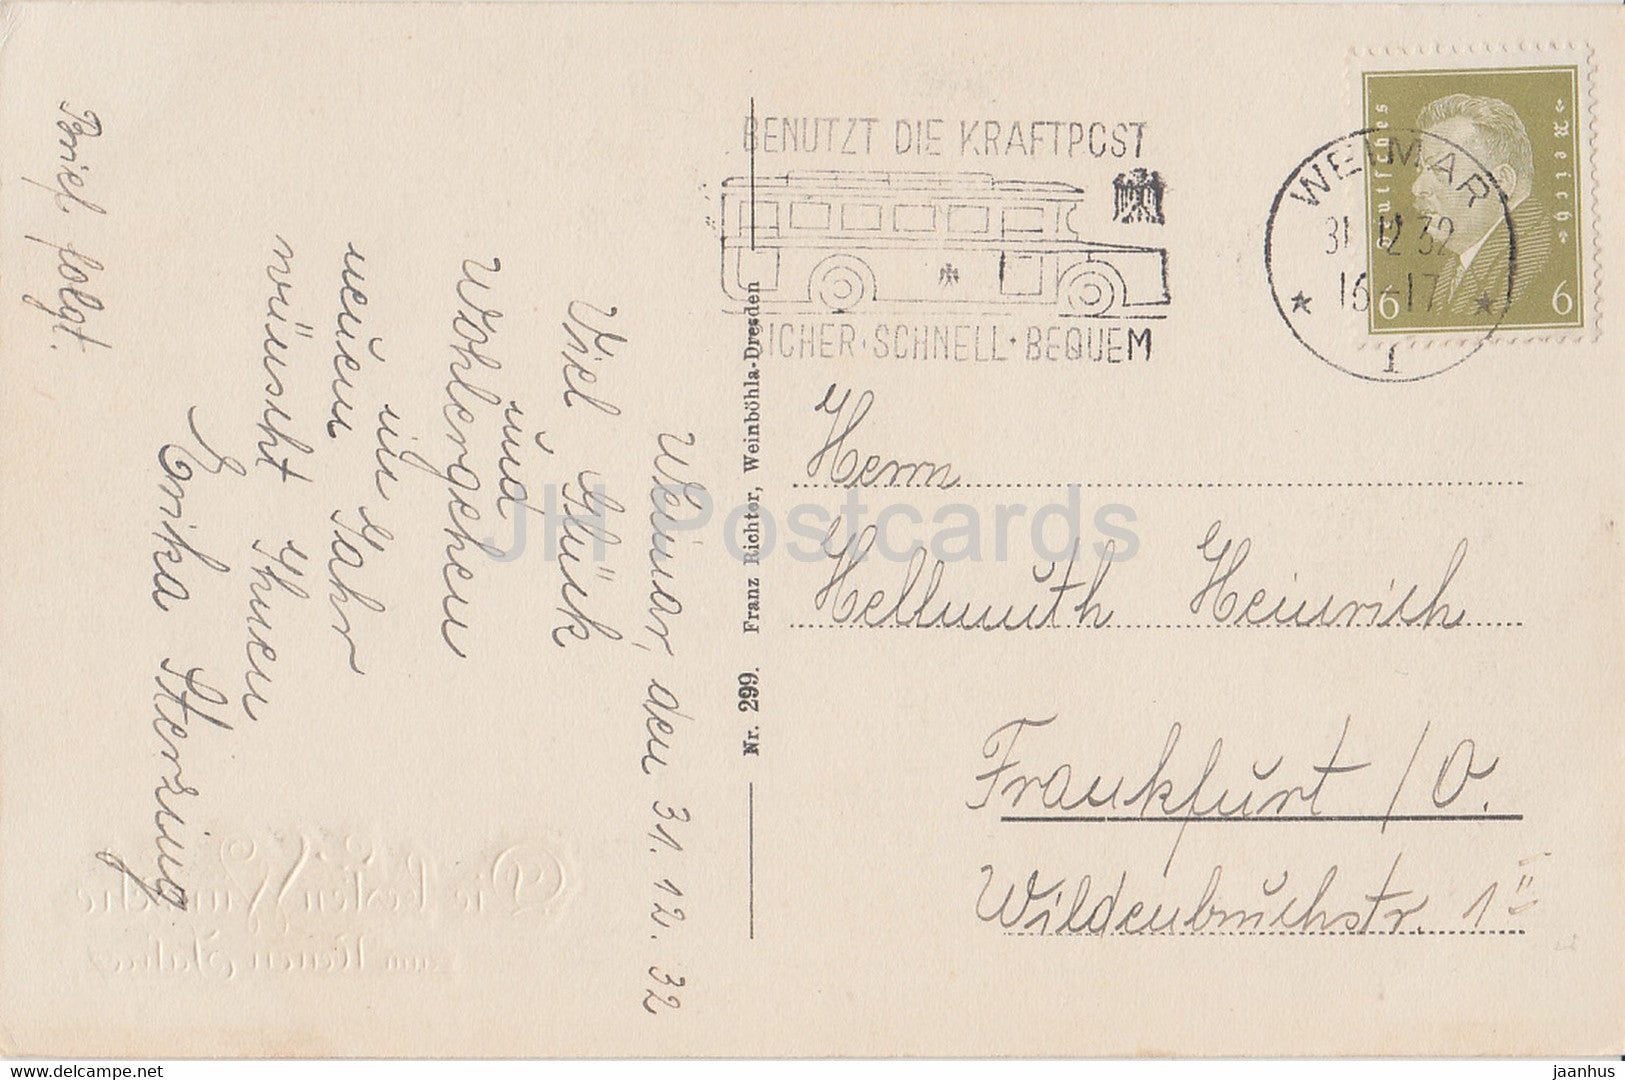 Weimar, den 31. 12. 32
Viel Glück
und
Wohlergehen
im
neuen Jahr
wünscht Ihnen
Erika Sterzing
Brief folgt.
Die besten Wünsche
zum Neuen Jahre
Nr. 299. Franz Richter, Weinböhla-Dresden
BENUTZT DIE KRAFTPOST
SICHER · SCHNELL · BEQUEM
WEIMAR
31 12 32
16-17
1
Deutsches Reich
6 6
Herrn
Hellmuth Heinrich
Frankfurt / O.
Wildenbruchstr. 1 II
JH Postcards
delcampe.net
jaanhus